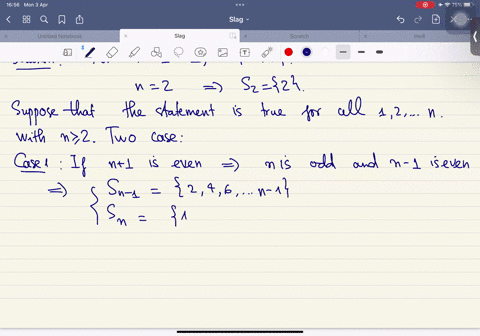 16:56 Mon 3 Apr
75%
Slag
Untitled Notebooks
Slag
Scratch
n = 2 ⟹ S₂ = {2}.
Suppose that the statement is true for all 1,2,... n.
with n⩾2. Two case:
Case 1: If n+1 is even ⟹ n is odd and n-1 is even
⟹ { Sₙ₋₁ = {2, 4, 6, ... n-1}
Sₙ = {1